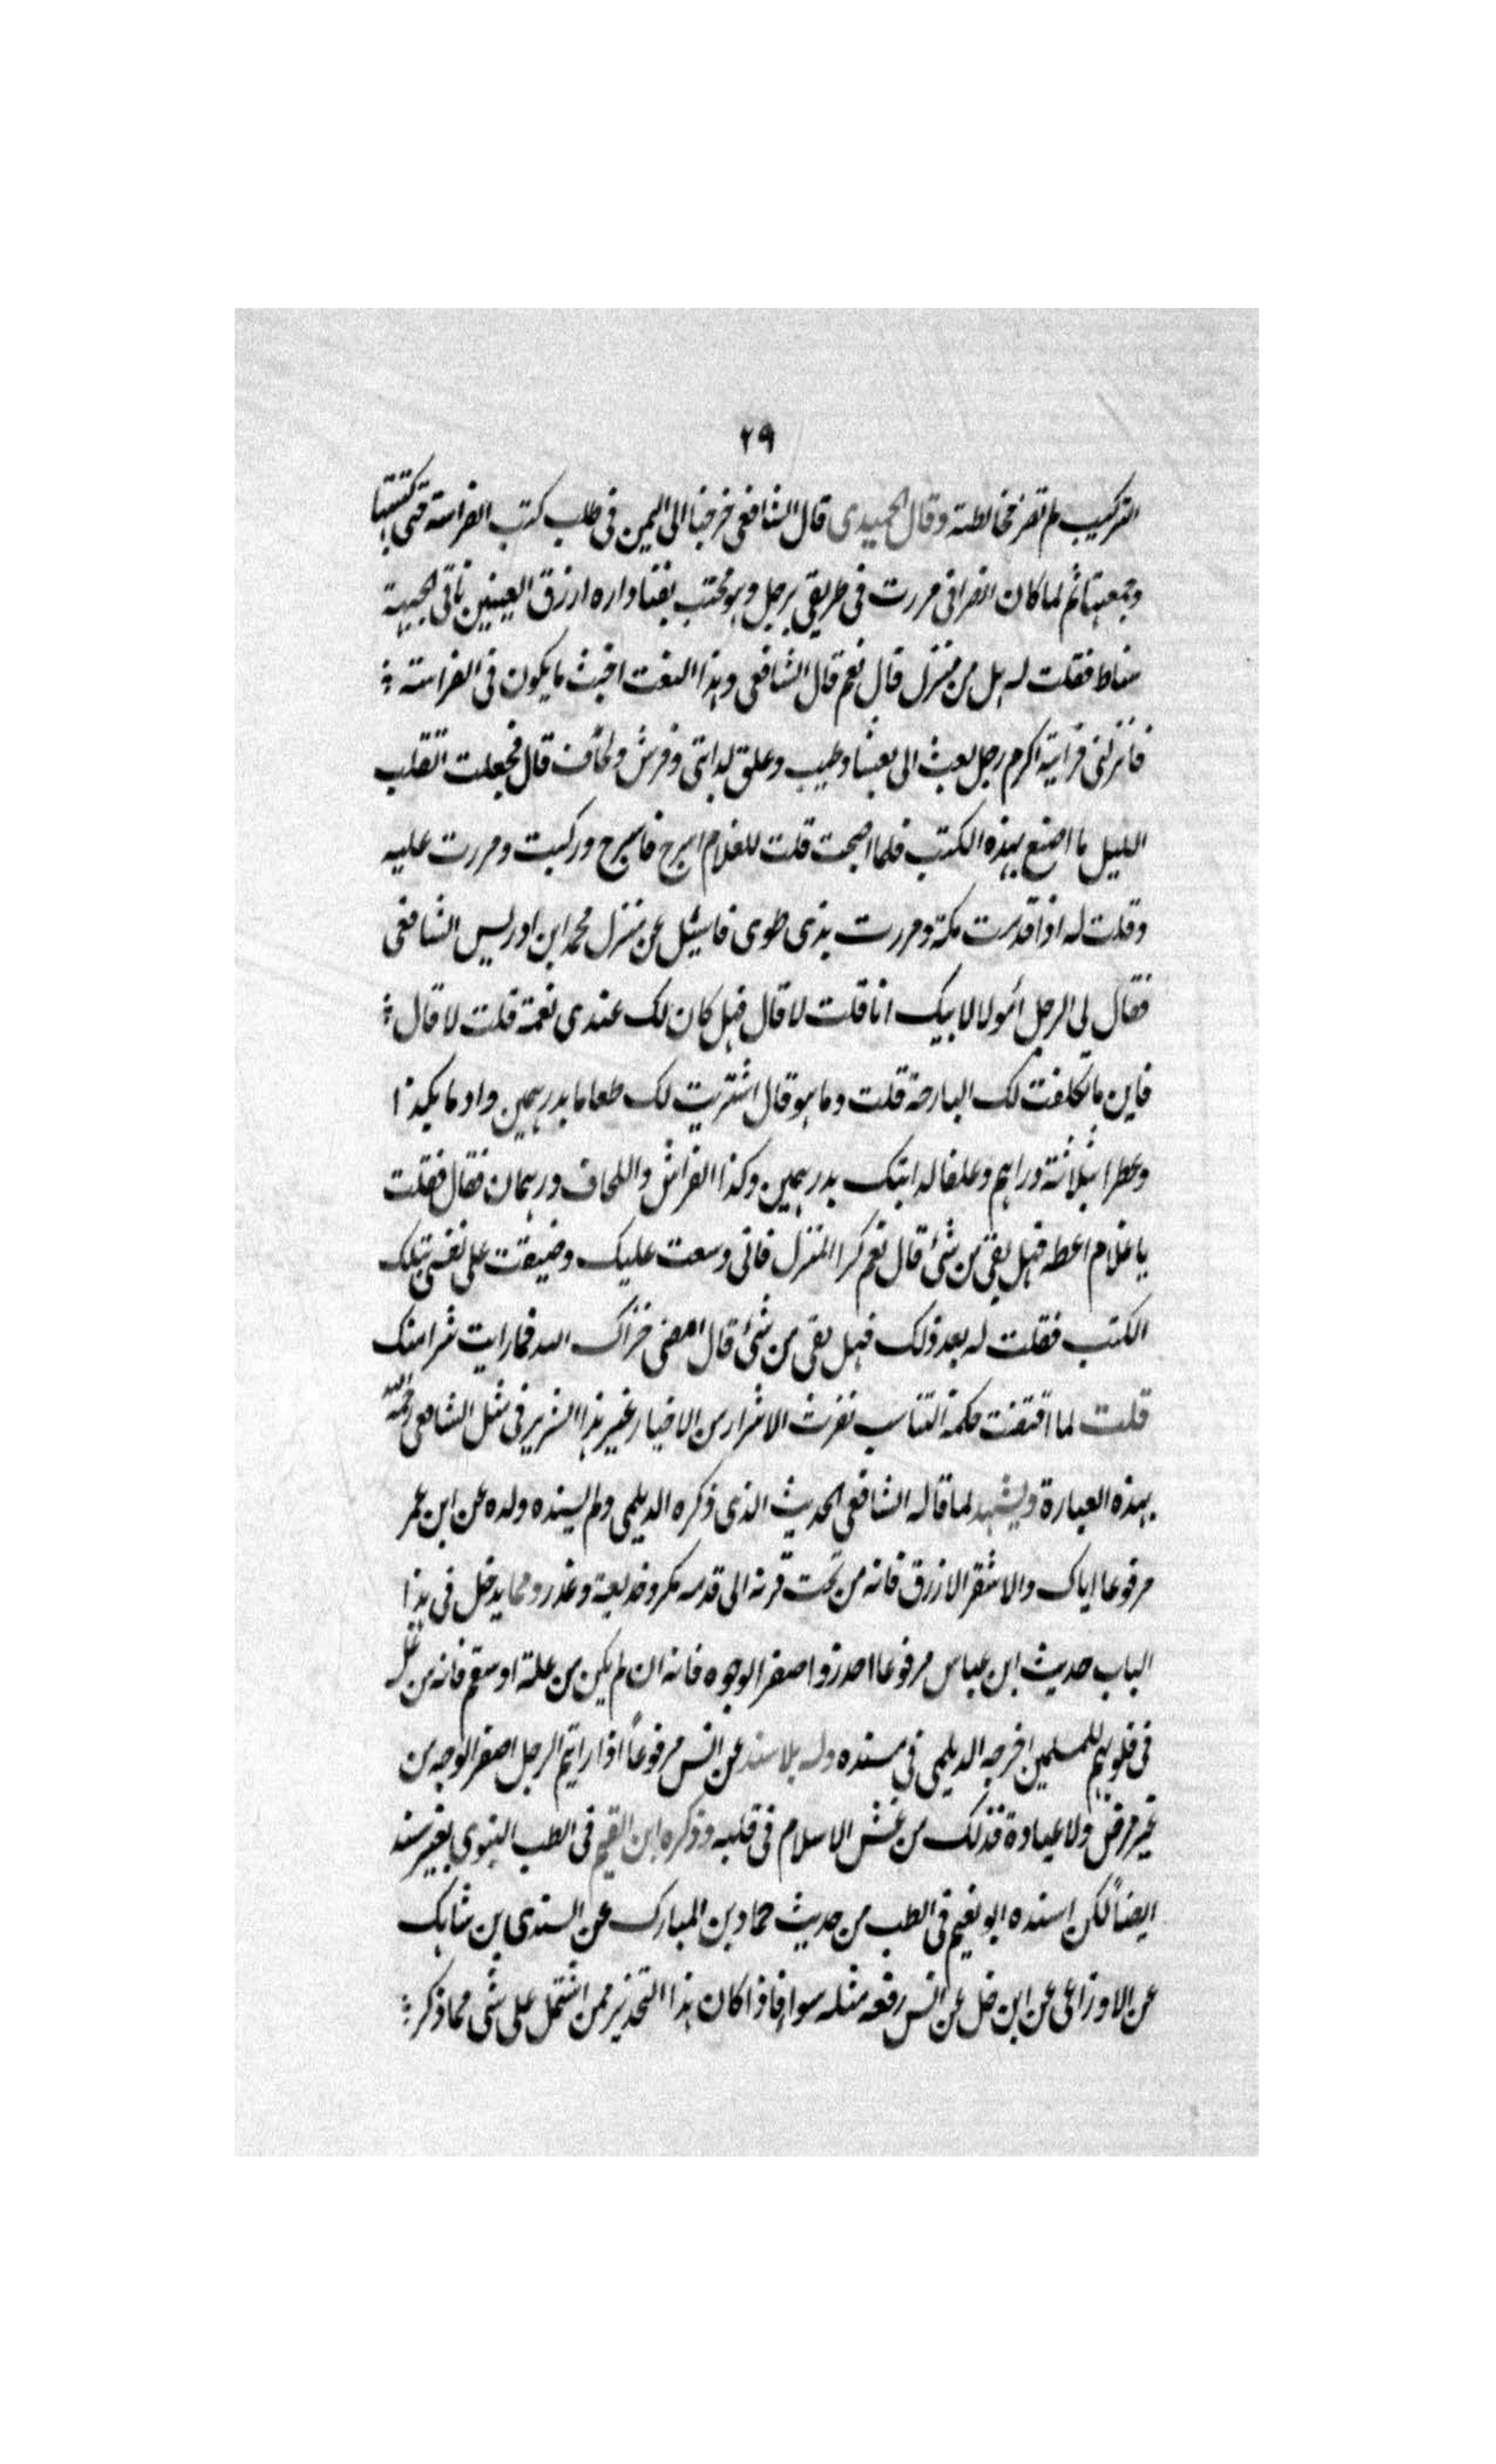 ٢٩
التركيب لم تضر مخالطته وقال الحميدى قال الشافعى خرجنا الى اليمن فى طلب كتب الفراسة حتى كتبتها
وجمعتها ثم لما كان انصرافى مررت فى طريقى برجل وهو محتب بفناء داره ازرق العينين ناتى الجبهة
سناط فقلت له هل من منزل قال نعم قال الشافعى وهذا النعت اخبث ما يكون فى الفراسة
فانزلنى فرأيته اكرم رجل بعث الى بعشا وطيب وعلق لدابتى وفرش ولحاف قال فجعلت اتقلب
الليل ما اصنع بهذه الكتب فلما اصبحت قلت للغلام اسرج فاسرج وركبت ومررت عليه
وقلت له اذا قدمت مكة ومررت بذى طوى فاسئل عن منزل محمد ابن ادريس الشافعى
فقال لى الرجل أمولا لابيك انا قلت لا قال فهل كان لك عندى نعمة قلت لا قال
فاين ما تكلفت لك البارحة قلت وما هو قال اشتريت لك طعاما بدرهمين واداما بكذا
وعطرا بثلاثة دراهم وعلفا لدابتك بدرهمين وكذا الفراش واللحاف درهمان فقال فقلت
يا غلام اعطه فهل بقى من شئ قال نعم كرا المنزل فانى وسعت عليك وضيقت على نفسى بتلك
الكتب فقلت له بعد ذلك فهل بقى من شئ قال امضى خزاك الله فما رايت شرا منك
قلت لما اقتضت حكمة التناسب نفرت الاشرار من الاخيار غير هذا الشرير فى مثل الشافعى رحمه الله
بهذه العبارة ويشهد لما قاله الشافعى الحديث الذى ذكره الديلمى ولم يسنده ولده عن ابن عمر
مرفوعا اياك والاشقر الازرق فانه من تحت قرنه الى قدمه مكر وخديعة وغدر ومما يدخل فى هذا
الباب حديث ابن عباس مرفوعا احذروا صفر الوجوه فانه ان لم يكن من علة او سقم فانه من غل
فى قلوبهم للمسلمين اخرجه الديلمى فى مسنده وله بلا سند عن انس مرفوعاً اذا رايتم الرجل اصفر الوجه من
غير مرض ولا عبادة فذلك من غش الاسلام فى قلبه وذكره ابن القيم فى الطب النبوى بغير سند
ايضاً لكن اسنده ابو نعيم فى الطب من حديث حماد بن المبارك عن السندى بن شاهك
عن الاوزاعى عن ابن عن انس رفعه مثله سواء فاذا كان هذا التحذير ممن اشتمل على شئ مما ذكر